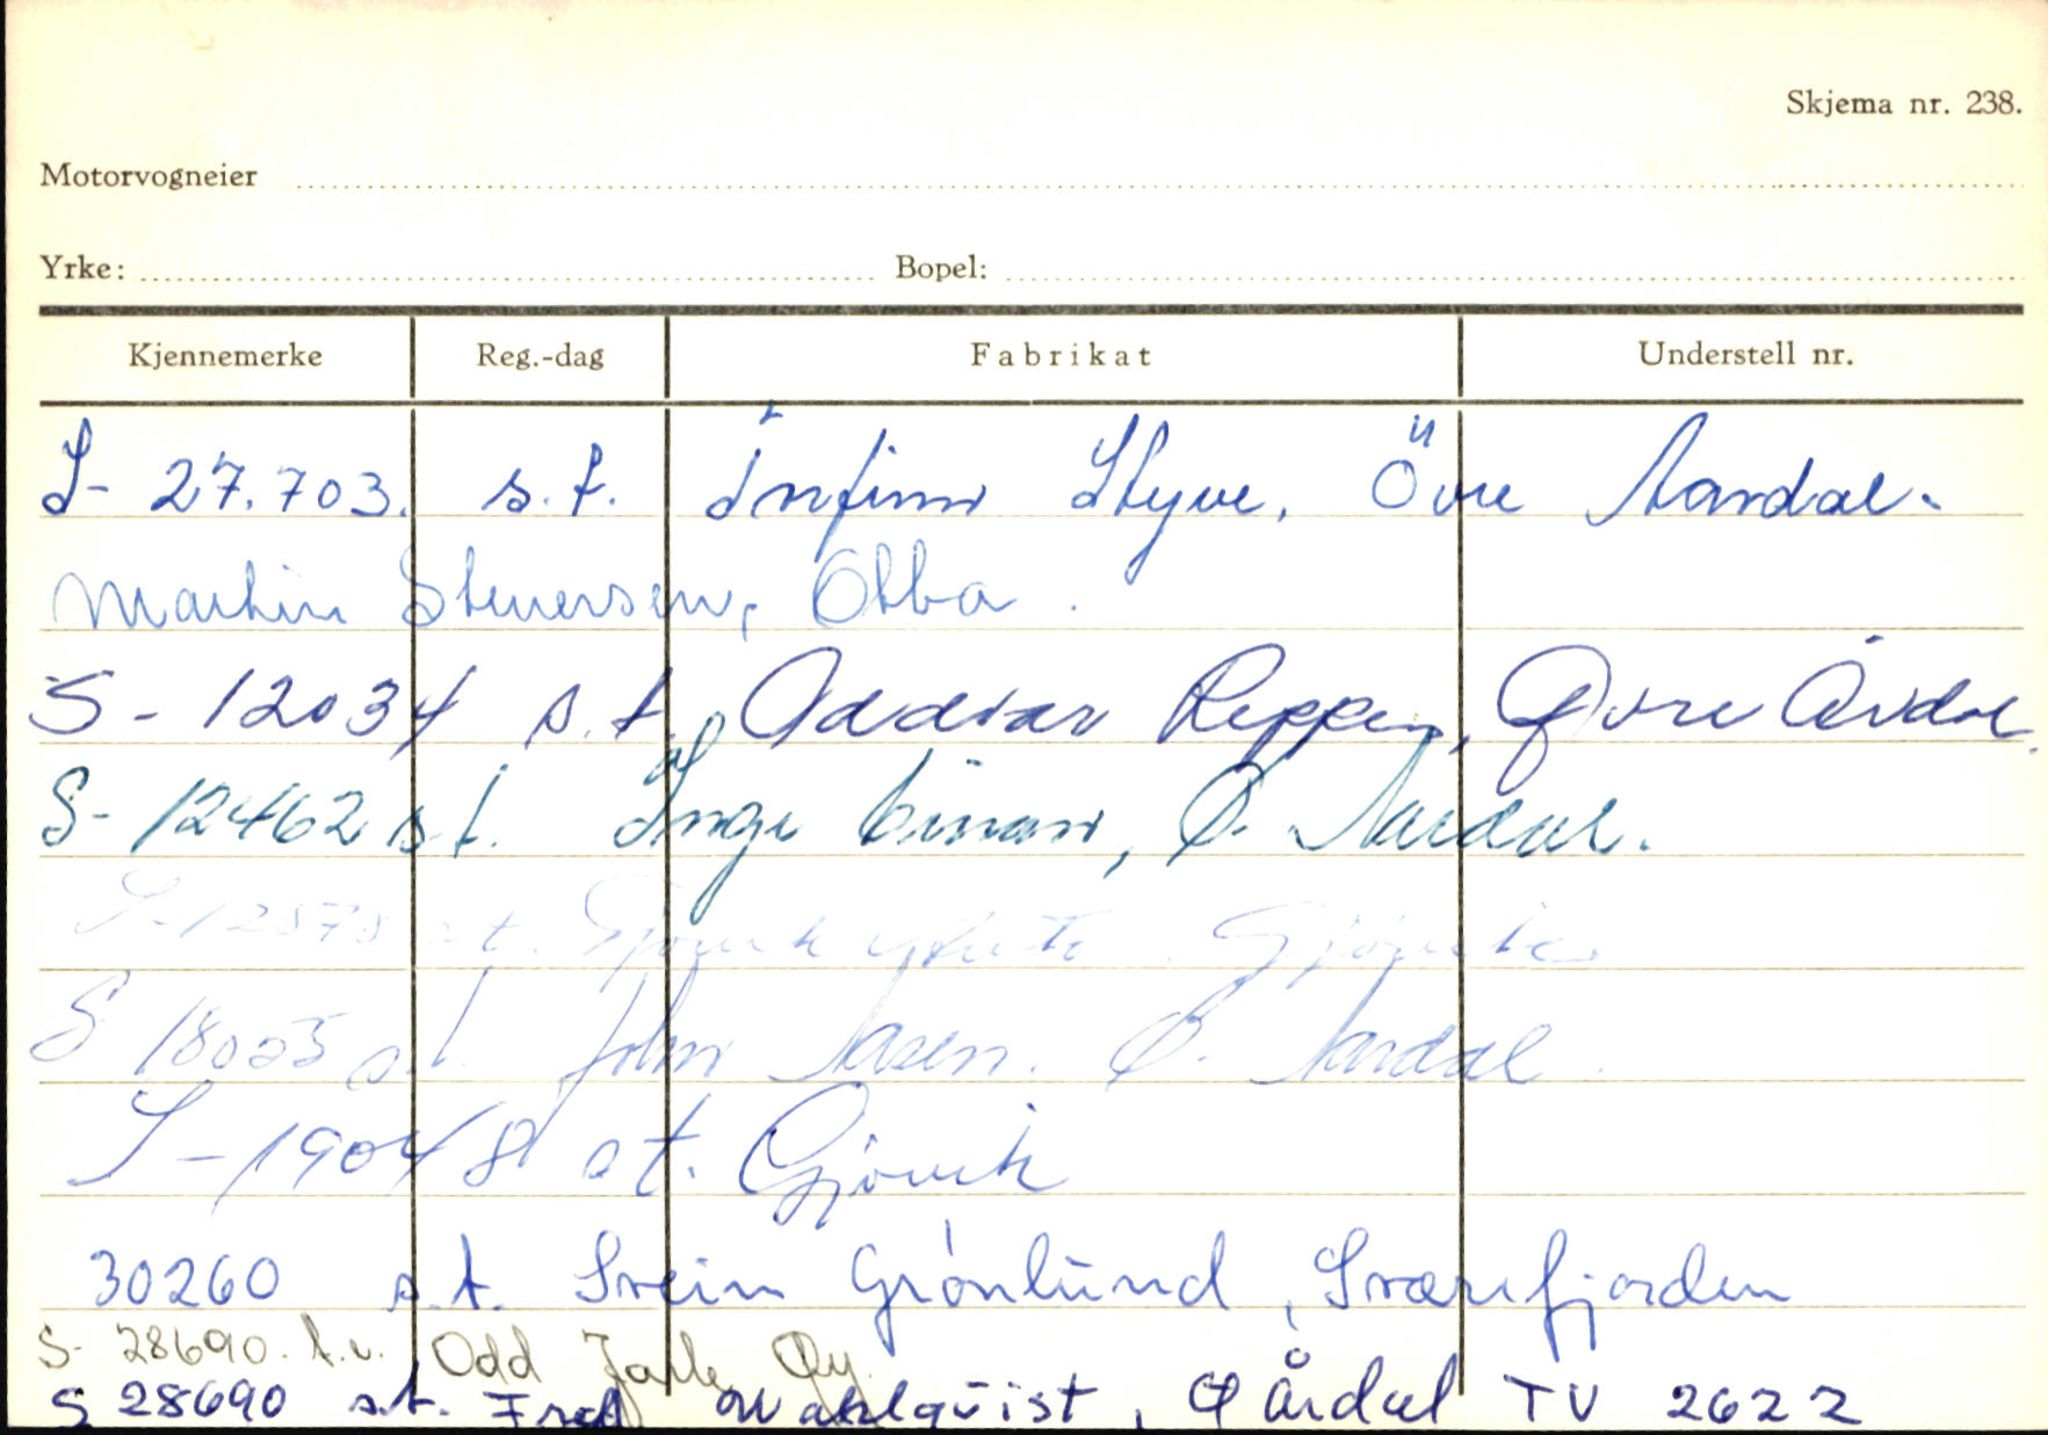 Skjema nr. 238.
Motorvogneier
Yrke: Bopel:
Kjennemerke Reg.-dag Fabrikat Understell nr.
S- 27.703. s.t. Infinn Styve, Övre Aardal.
Martin Stenersen, Obba.
S- 12034 s.t. Oddvar Reppen, Øvre Årdal.
S- 12462 s.t. Inge Einan, Ø. Aardal.
S-12878 s.t. Gjövik Gjövik
S 18035 s.t. John Aasen. Ø. Aardal.
S-19048 s.t. Gjövik
30260 s.t. Svein Grönlund, Sværefjorden
S- 28690. t.v. Odd Jarle Øy.
S 28690 s.t. Fred Wahlquist, Ø Årdal TV 2622